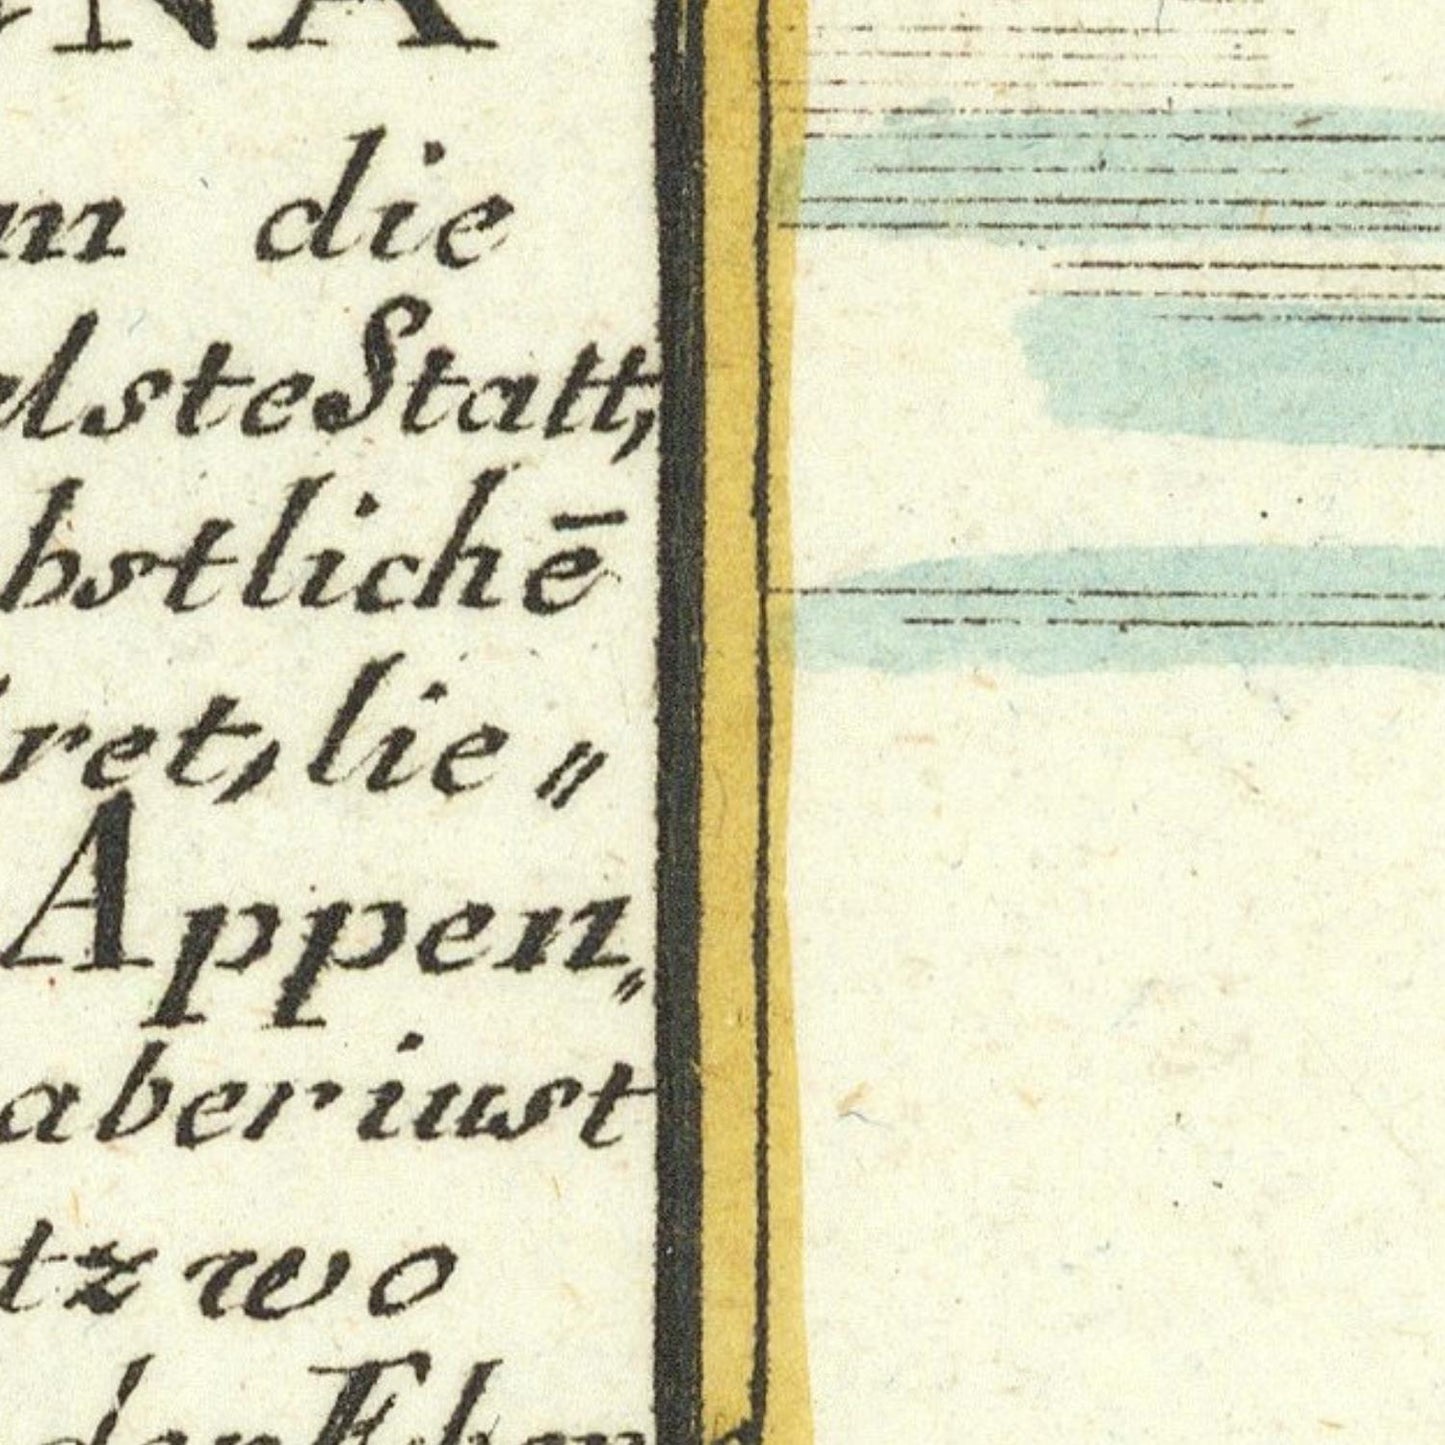 NA
die
Statt,
bstlichē
ret, lie〃
Appen〃
aber iust
tz wo
den